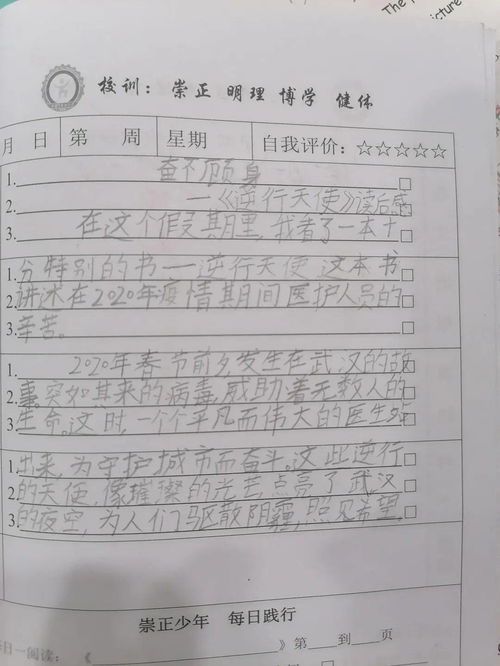 The
picture
校训：崇正 明理 博学 健体
月 日 第 周 星期 自我评价：☆☆☆☆☆
1. 奋不顾身 □
2. ——《逆行天使》读后感 □
3. 在这个假期里，我看了一本十 □
1. 分特别的书——逆行天使 这本书 □
2. 讲述在2020年疫情期间医护人员的 □
3. 辛苦。 □
1. 2020年春节前夕,发生在武汉的故 □
2. 事。突如其来的病毒,威胁着无数人的 □
3. 生命。这时,一个个平凡而伟大的医生站 □
1. 出来,为守护城市而奋斗。这些逆行 □
2. 的天使,像璀璨的光芒,点亮了武汉 □
3. 的夜空,为人们驱散阴霾,照见希望, □
崇正少年 每日践行
每日一阅读：《 》第 到 页